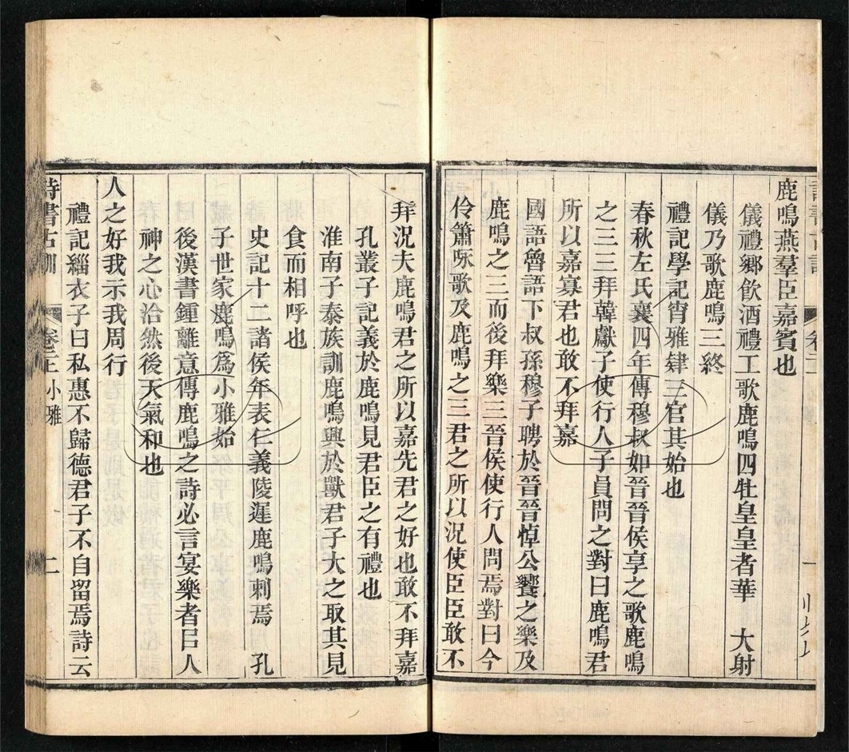 鹿鳴燕羣臣嘉賓也
儀禮鄉飲酒禮工歌鹿鳴四牡皇皇者華 大射
儀乃歌鹿鳴三終
禮記學記宵雅肄三官其始也
春秋左氏襄四年傳穆叔如晉晉侯享之歌鹿鳴
之三三拜韓獻子使行人子員問之對曰鹿鳴君
所以嘉寡君也敢不拜嘉
國語魯語下叔孫穆子聘於晉晉悼公饗之樂及
鹿鳴之三而後拜樂三晉侯使行人問焉對曰今
伶簫詠歌及鹿鳴之三君之所以況使臣臣敢不
拜況夫鹿鳴君之所以嘉先君之好也敢不拜嘉
孔叢子記義於鹿鳴見君臣之有禮也
淮南子泰族訓鹿鳴興於獸君子大之取其見
食而相呼也
史記十二諸侯年表仁義陵遲鹿鳴刺焉 孔
子世家鹿鳴爲小雅始
後漢書鍾離意傳鹿鳴之詩必言宴樂者㠯人
神之心洽然後天氣和也
人之好我示我周行
禮記緇衣子曰私惠不歸德君子不自留焉詩云
詩書古訓 卷二上 小雅 二